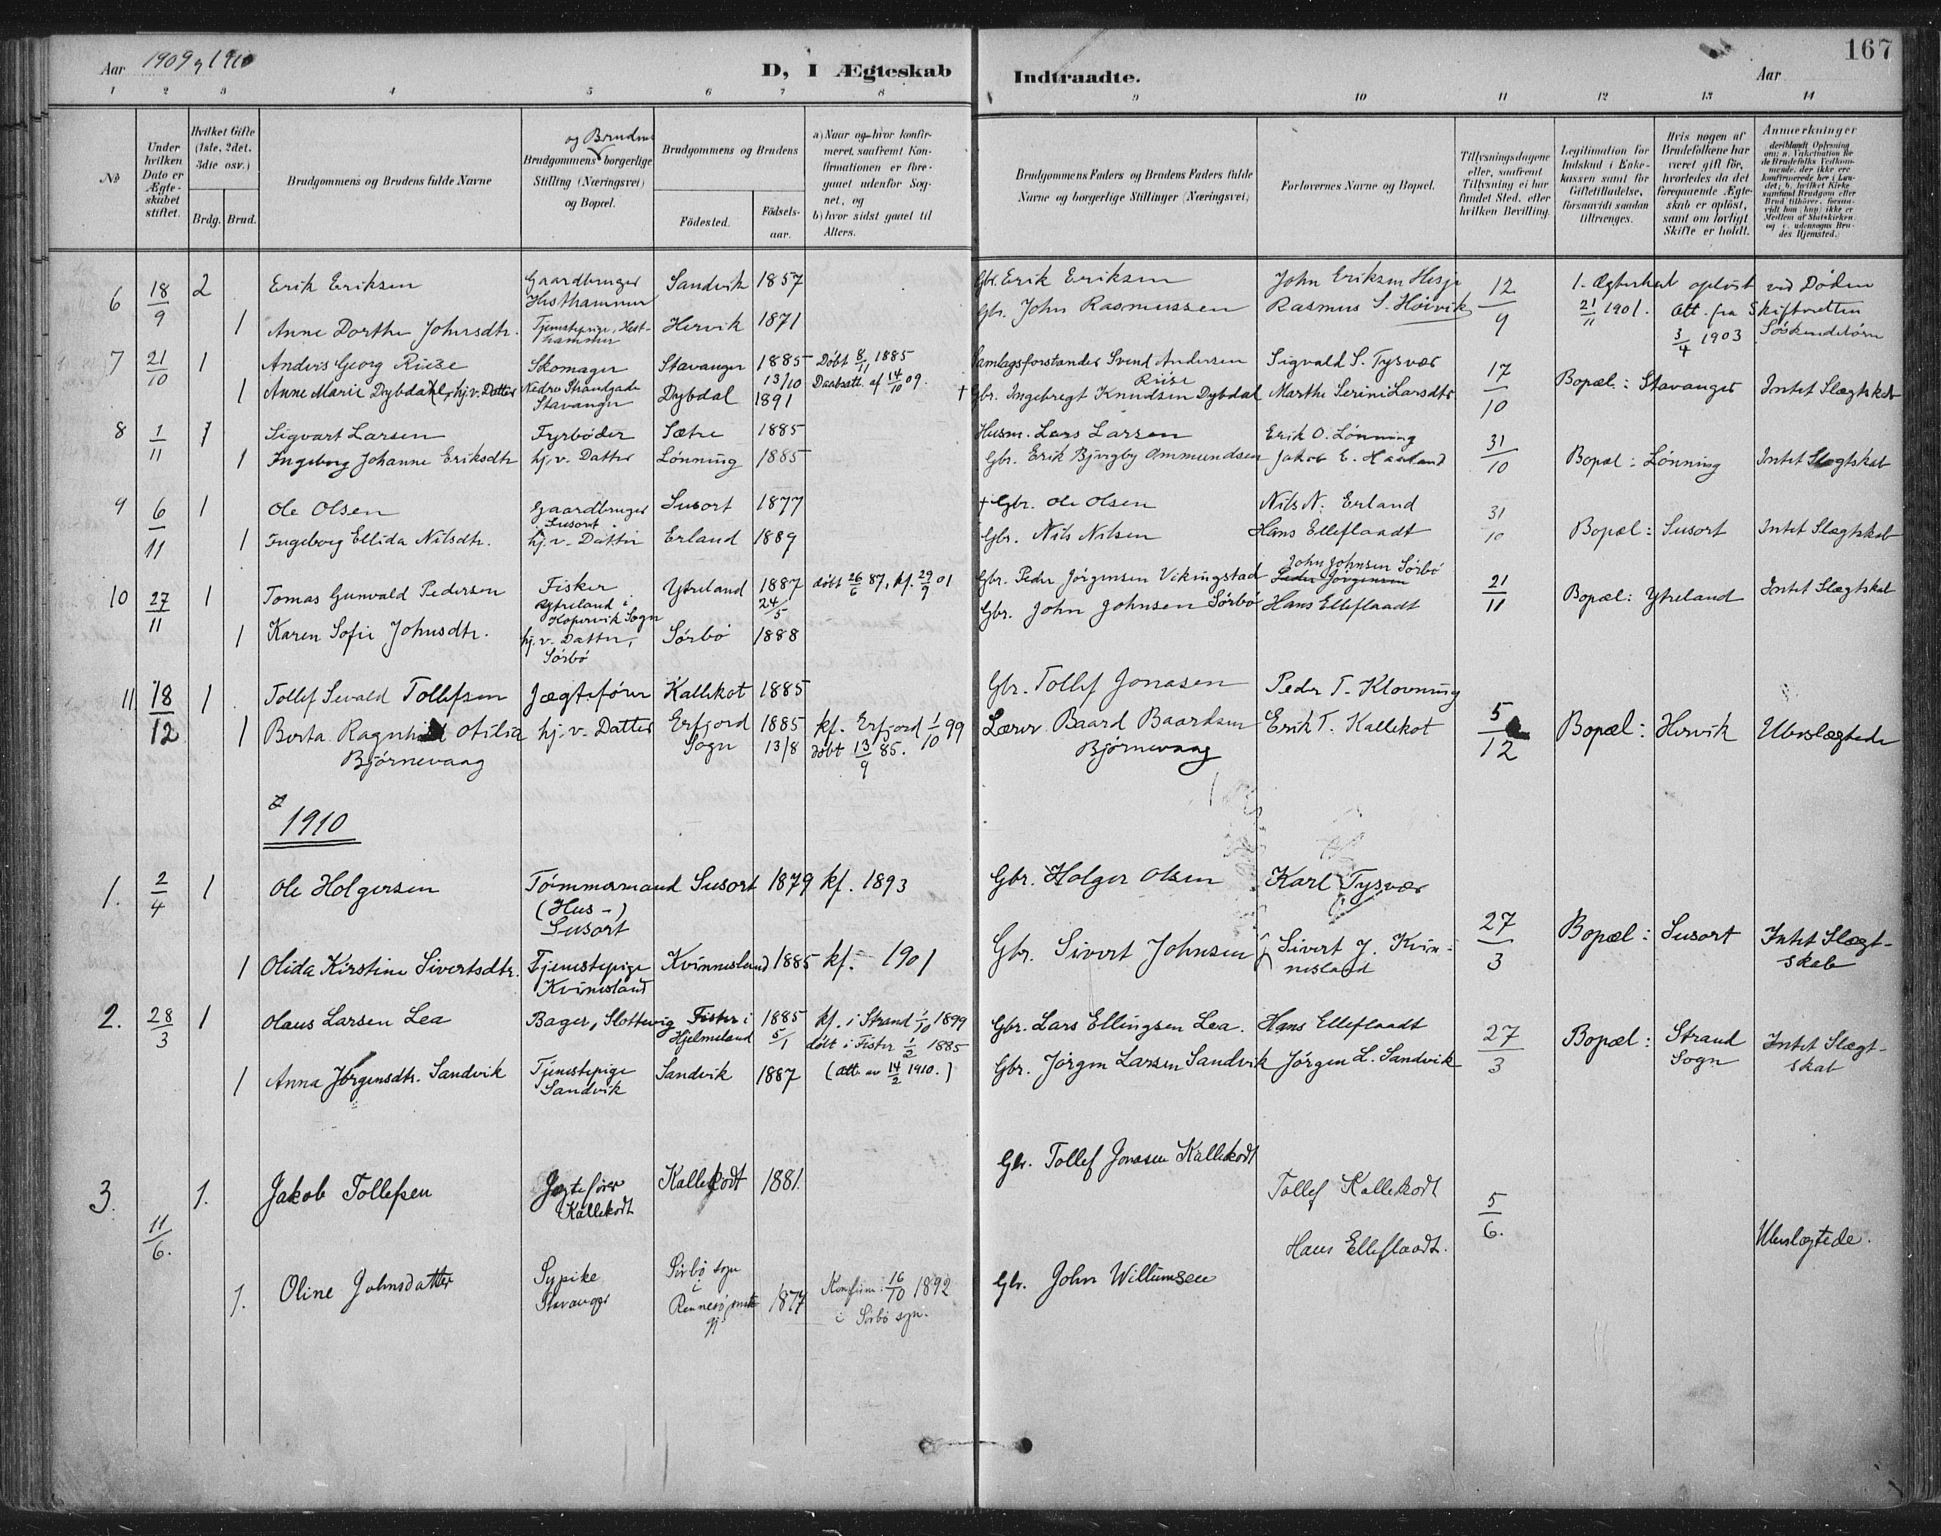 Aar 1909 og 1910
D, I Ægteskab
Indtraadte.
Aar
167
1 2 3 4 5 6 7 8 9 10 11 12 13 14
No
Under hvilken Dato er Ægteskabet stiftet.
Hvilket Gifte (1ste, 2det, 3die osv.)
Brdg. Brud.
Brudgommens og Brudens fulde Navne
og Brudens
Brudgommens borgerlige Stilling (Næringsvei) og Bopæl.
Brudgommens og Brudens
Födested.
Födselsaar.
a) Naar og hvor konfirmeret, saafremt Konfirmationen er foregaaet udenfor Sognet, og
b) hvor sidst gaaet til Alters.
Brudgommens Faders og Brudens Faders fulde Navne og borgerlige Stillinger (Næringsvei)
Forlovernes Navne og Bopæl.
Tillysningsdagene eller, saafremt Tillysning ei har fundet Sted, efter hvilken Bevilling.
Legitimation for Indskud i Enkekassen samt for Giftetilladelse, forsaavidt saadan tiltrænges.
Hvis nogen af Brudefolkene har været gift før, hvorledes da det foregaaende Ægteskab er oplöst, samt om lovligt Skifte er holdt.
Anmærkninger
6 18/9 2 Erik Eriksen Gaardbruger Hesthammer Sandvik 1857 Gbr. Erik Eriksen John Eriksen Hesje 12/9 1. Ægteskab opløst ved Døden 21/11 1901. Att. fra Skifteretten 3/4 1903 Søskendebørn
1 Anne Dorthe Johnsdtr. Tjenestepige, Hesthammer Hervik 1871 Gbr. John Rasmussen Rasmus S. Høivik
7 21/10 1 Anders Georg Riise Skomager Nedre Strandgade Stavanger Stavanger 1885 13/10 Døbt 8/11 1885 Daabsatt. af 14/10 09. Samlagsforstander Svend Andersen Riise Sigvald S. Tysvær 17/10 Bopæl: Stavanger Intet Slægtskab
1 Anne Marie Dybdahl, hj.v. Datter Dybdal 1891 + Gbr. Ingebregt Knudsen Dybdal Marthe Serine Larsdtr
8 1/11 1 Sigvart Larsen Fyrbøder Sætre 1885 Husm. Lars Larsen Erik O. Lønning 31/10 Bopæl: Lønning Intet Slægtskab
1 Ingeborg Johanne Eriksdtr hj. v. Datter Lønning 1885 Gbr. Erik Ommundsen Jakob E. Haaland
9 6/11 1 Ole Olsen Gaardbruger Susort Susort 1877 + Gbr. Ole Olsen Nils N. Erland 31/10 Bopæl: Susort Intet Slægtskab
1 Ingeborg Ellida Nilsdtr. hj. v. Datter Erland 1889 Gbr. Nils Nilsen Hans Elleflaadt
10 27/11 1 Tomas Gunvald Pedersen Fisker Ytreland i Kopervik Sogn Ytreland 1887 24/5 døbt 26/6 87, kf. 29/9 01 Gbr. Peder Jørgensen Vikingstad John Johnsen Sørbø Peder Jørgensen 21/11 Bopæl: Ytreland Intet Slægtskab
1 Karen Sofie Johnsdtr. hj. v. Datter, Sørbø Sørbø 1888 Gbr. John Johnsen Sørbø Hans Elleflaadt
11 18/12 1 Tollef Sevald Tollefsen Jægtefører Kallekot 1885 Gbr. Tollef Jonasen Peder T. Klovning 5/12 Bopæl: Hervik Ubeslægtede
1 Berta Ragnhild Otilia Bjørnevaag hj. v. Datter Erfjord Sogn 1885 13/8 kf. Erfjord 1/10 99 døbt 13/9 85. Lærer Baard Baardsen Bjørnevaag Erik T. Kallekot
1910
1. 2/4 1 Ole Holgersen Tømmermand (Hus-) Susort Susort 1879 kf. 1893 Gbr. Holger Olsen Karl Tysvær 27/3 Bopæl: Susort Intet Slægtskab
1 Olida Kirstine Sivertsdtr. Tjenestepige Kvinnesland Kvinnesland 1885 kf. 1901 Gbr. Sivert Johnsen Sivert J. Kvinnesland
2. 28/3 1 Olaus Larsen Lea Bager, Slottevig Fister i Hjelmeland 1885 5/1 kf. i Strand 1/10 1899 døbt i Fister 1/2 1885 Gbr. Lars Ellingsen Lea. Hans Elleflaadt 27/3 Bopæl: Strand Sogn Intet Slægtskab
1 Anna Jørgensdtr. Sandvik Tjenestepige Sandvik Sandvik 1887 (att. av 14/2 1910.) Gbr. Jørgen Larsen Sandvik Jørgen L. Sandvik
3. 11/6. 1. Jakob Tollefsen Jægtefører Kallekodt Kallekodt 1881. Gbr. Tollef Jonasen Kallekodt Tollef Kallekodt 5/6. Ubeslægtede.
1. Oline Johnsdatter Sypike Stavanger Sørbø sogn i Rennesø 1877 Konfirm: 16/10 1892 i Sørbø sogn. Gbr. John Willumsen Hans Elleflaadt.